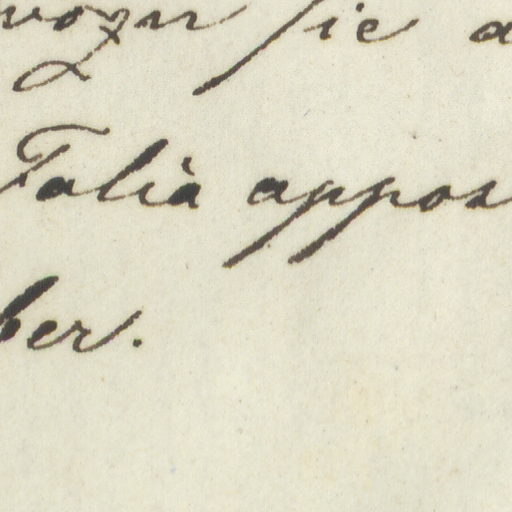 wozu sie a
Talià appos
ber.